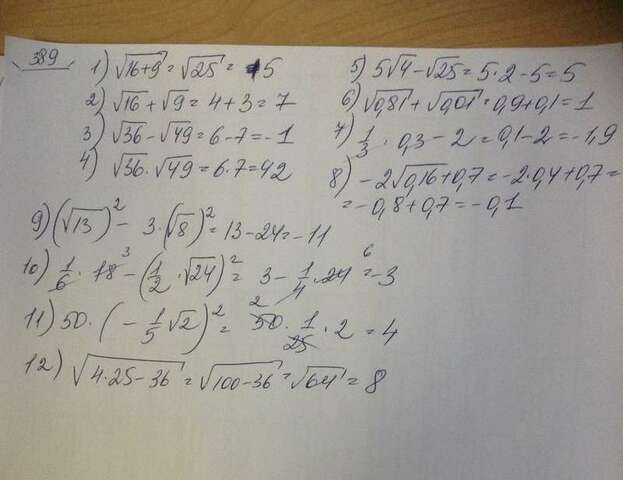 389
1) √16+9 = √25 = 5
2) √16 + √9 = 4 + 3 = 7
3) √36 - √49 = 6 - 7 = -1
4) √36 · √49 = 6 · 7 = 42
5) 5√4 - √25 = 5 · 2 - 5 = 5
6) √0,81 + √0,01 = 0,9 + 0,1 = 1
7) 1/3 · 0,3 - 2 = 0,1 - 2 = -1,9
8) -2√0,16 + 0,7 = -2 · 0,4 + 0,7 =
= -0,8 + 0,7 = -0,1
9) (√13)² - 3 · (√8)² = 13 - 24 = -11
10) 1/6 · 18 3 - (1/2 · √24)² = 3 - 1/4 · 24 6 = -3
11) 50 · (-1/5 √2)² = 50 2 · 1/25 · 2 = 4
12) √4 · 25 - 36 = √100 - 36 = √64 = 8